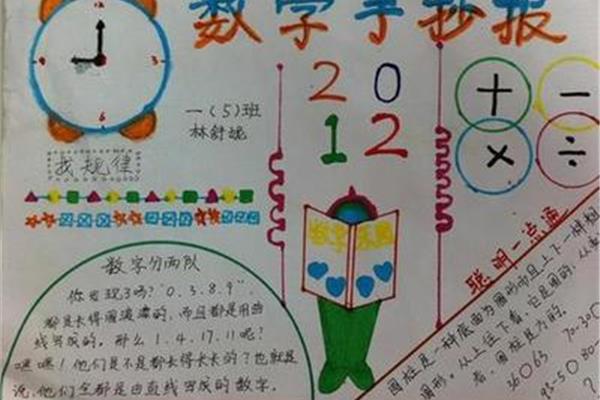 数学手抄报
12
3
6
9
一(5)班
林舒妮
2 0
1 2
+ -
× ÷
找规律
数学乐园
聪明一点通
数字分两队
你发现了吗?"0.3.8.9."
都是长得圆滚滚的,而且都是用曲
线写成的。那么1.4.17.11呢?
嘿嘿!他们是不是都长得长长的?也就是
说,他们全都是由直线写成的数字。
圆柱是一种底面为圆形而且上下一样粗
图形。从上往下看,它是圆的,从
看,圆柱是方的。
36063
70-30
93-50
80-